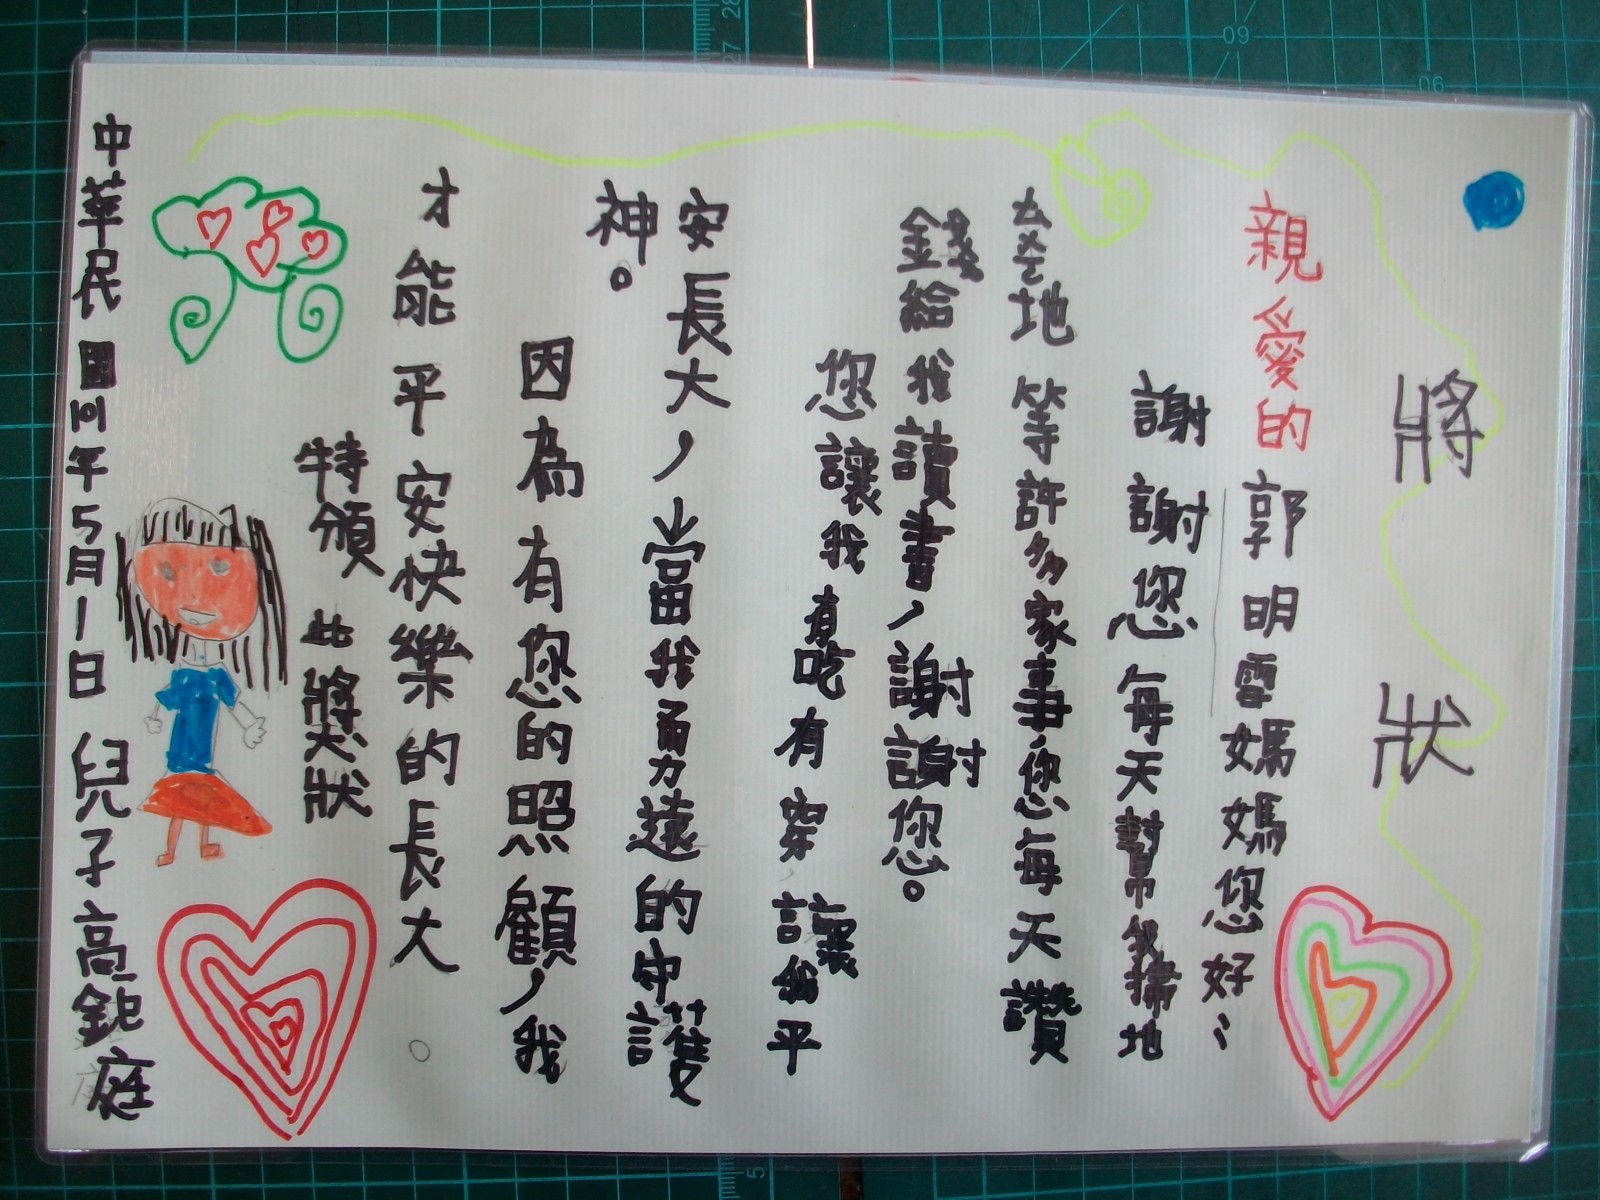 將狀
親愛的郭明雪媽媽您好:
謝謝您每天幫我掃地
ㄊㄨㄛ地等許多家事,您每天讚
錢給我讀書,謝謝您。
您讓我有吃有穿,讓我平
安長大,當我勇遠的守護
神。
因為有您的照顧,我
才能平安快樂的長大。
特頒此獎狀
中華民國101年5月1日兒子高鉅庭